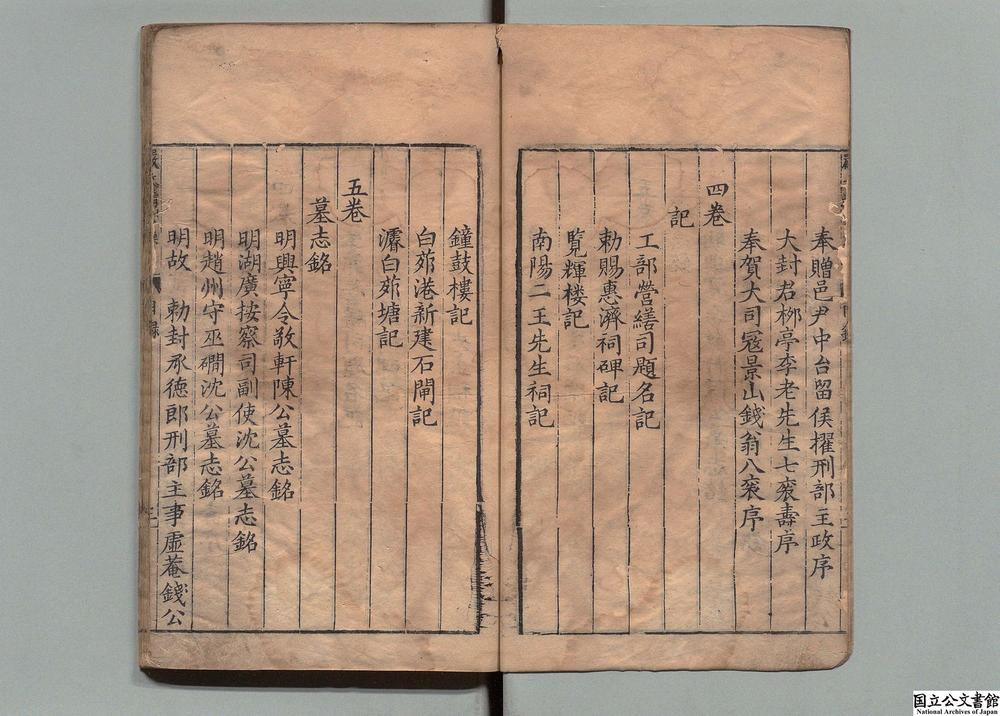 奉贈邑尹中台留侯擢刑部主政序
大封君栁亭李老先生七袠壽序
奉賀大司冦景山錢翁八袠序
四卷
記
工部營繕司題名記
勅賜惠濟祠碑記
覧輝楼記
南陽二王先生祠記
鐘鼓樓記
白茆港新建石閘記
濬白茆塘記
五卷
墓志銘
明興寧令敬軒陳公墓志銘
明湖廣按察司副使沈公墓志銘
明趙州守巫磵沈公墓志銘
明故 勅封承徳郎刑部主事虛菴錢公
目錄
国立公文書館
National Archives of Japan